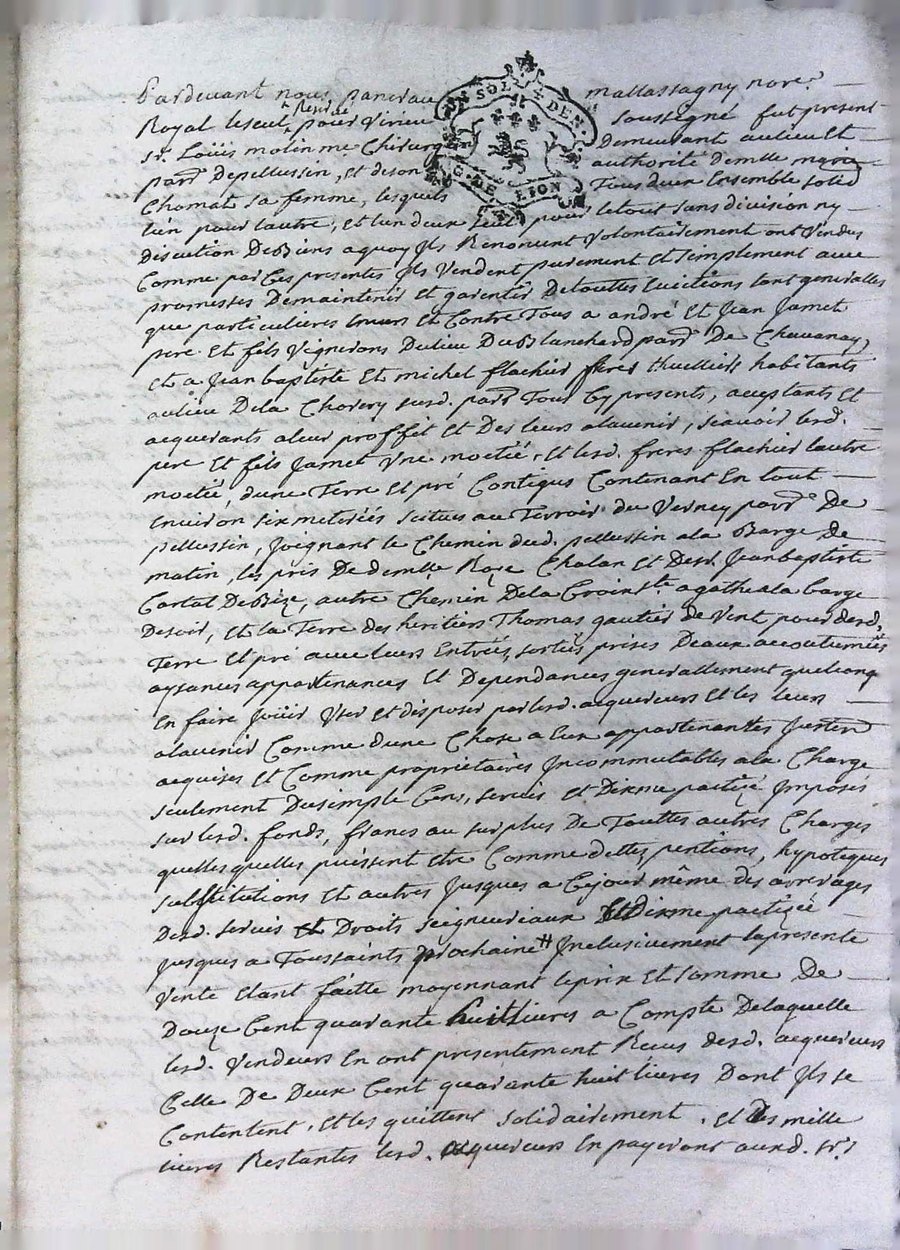 Pardevant nous pancrau mallassagny nore.
Royal leseul Reservé pour Virieu soussigné fut present
sr. Loüis molin me. Chirurg demeurant au lieu Et
parr. de pellussin, et de son authorité demlle marie
Chomat sa femme, lesquels Tous deux Ensemble solid
UN SOL 4 DEN.
G. DE LION
l'un pour lautre, et l'un deux seul pour letout sans division ny
discution De Biens aquoy Ils Renoncent Volontairement ont Vendus
Comme par Ces presentes Ils Vendent purement et simplement avec
promesses De maintenir et garentir De touttes Euictions tant generalles
que particulieres Envers et Contre Tous a andré Et Jean Jamet
pere Et fils Vignerons Du lieu Du Blanchard parr. De Chavanay,
et a Jean baptiste Et michel flachier freres thuelliers habitants
aulieu De la Chorery susd. parr. Tous Cy presents, aceptants et
acquerants a leur proffit et Des leurs alavenir, scavoir lesd.
pere Et fils Jamet Vne moetié, et lesd. freres flachier lautre
moetié, dune Terre et pré Contigus Contenant En tout
Environ six meterées scitués au Terroir du Verney parr. De
pellussin, Joignant le Chemin dud. pellussin ala Barge De
matin, les prés De demlle. Roze Chalan et Dud. Jean baptiste
Cartal De Bize, autre Chemin De la Croix ste. agathe ala barge
De soir, et la Terre des heritiers Thomas gautier de Vent pour Lesd.
Terre Et pré avec leurs Entrées, sorties prises Deaux accoutumées
aysances appartenances et Dependances generallement quelconq
En faire Joüir Vser et disposer par lesd. acquereurs Et les leurs
alavenir Comme dune Chose a Eux appartenantes Justem
acquises et Comme propriétaires Incommutables ala Charge
seulement Du simple Cens, servis et Dixme partizé Imposés
sur lesd. fonds, francs au surplus De Touttes autres Charges
quelles quelles puissent etre Comme dettes, pentions, hypoteques
substitutions et autres Jusques a Cejour même des arrerages
Desd. servis et Droits seigneuriaux et Dixme partizée
Jusques a Toussaints prochaine # Inclusivement lapresente
Vente Etant faitte moyennant leprix et somme De
Douze Cent quarante huit livres a Compte De laquelle
lesd. Vendeurs En ont presentement Recus desd. acquereurs
Celle De Deux Cent quarante huit livres Dont Ils se
Contentent, et les quittent solidairement, et les mille
livres Restantes lesd. acquereurs En payeront aud. sr.